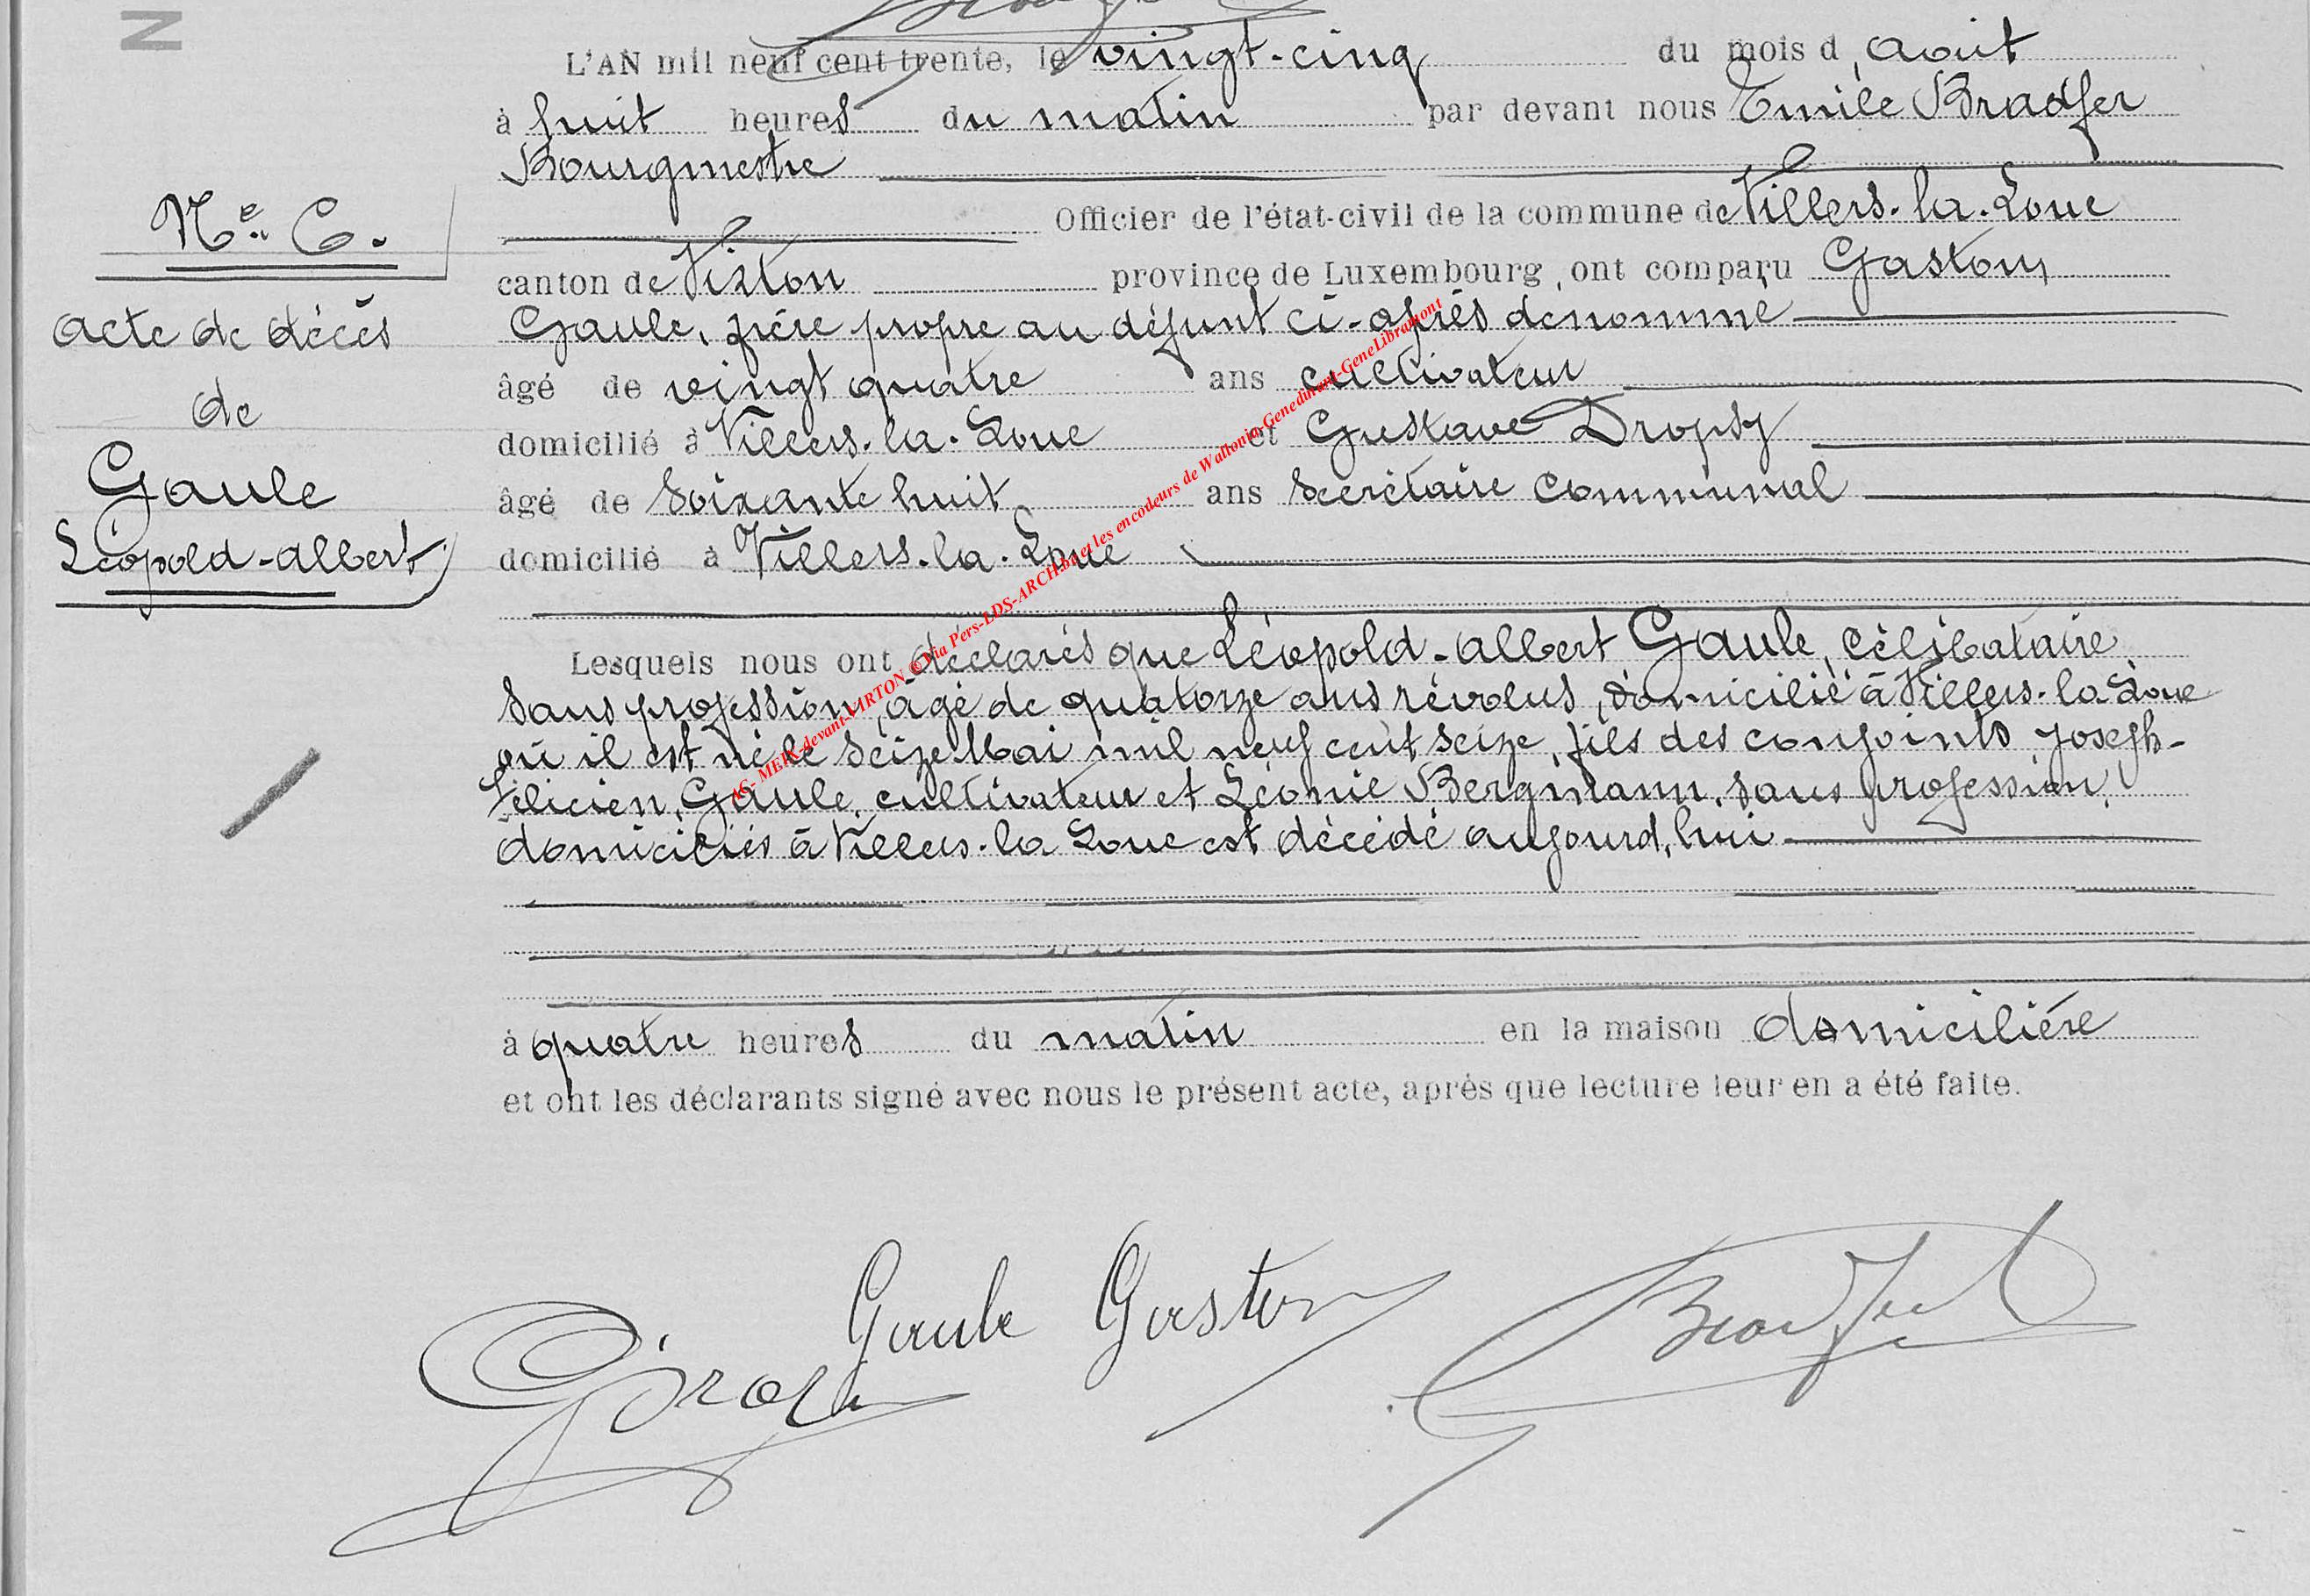 N
L'AN mil neuf cent trente, le vingt-cinq du mois d'Août
à huit heures du matin par devant nous Emile Bradfer
Bourgmestre
Officier de l'état-civil de la commune de Villers-la-Loue
canton de Virton province de Luxembourg, ont comparu Gaston
Gaule, frère propre au défunt ci-après dénommé
âgé de vingt quatre ans cultivateur
domicilié à Villers-la-Loue et Gustave Dropsy
âgé de soixante huit ans secrétaire communal
domicilié à Villers-la-Loue
Lesquels nous ont déclarés que Léopold-Albert Gaule, célibataire
sans profession, âgé de quatorze ans révolus, domicilié à Villers-la-Loue
où il est né le seize Mai mil neuf cent seize, fils des conjoints Joseph-
Félicien Gaule, cultivateur et Léonie Bergmann, sans profession,
domiciliés à Villers-la-Loue est décédé aujourd'hui
à quatre heures du matin en la maison domicilière
et ont les déclarants signé avec nous le présent acte, après que lecture leur en a été faite.
Acte de décès
de
Gaule
Léopold-Albert
Gaule Gaston
Bradfer